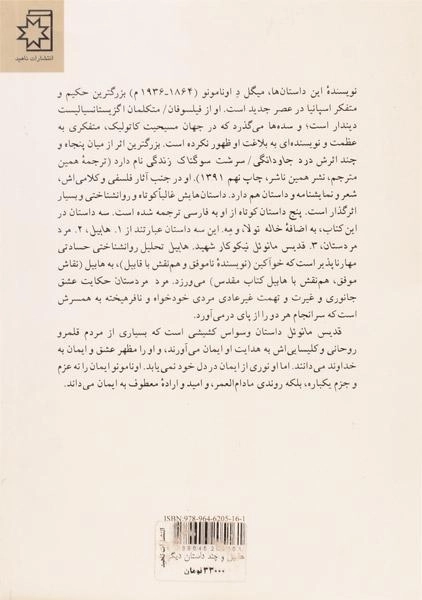 انتشارات ناهید
نویسندهٔ این داستان‌ها، میگل دِ اونامونو (۱۸۶۴-۱۹۳۶ م) بزرگترین حکیم و
متفکر اسپانیا در عصر جدید است. او از فیلسوفان/ متکلمان اگزیستانسیالیست
دیندار است؛ و سده‌ها می‌گذرد که در جهان مسیحیت کاتولیک، متفکری به
عظمت و نویسنده‌ای به بلاغت او ظهور نکرده است. بزرگترین اثر از میان پنجاه و
چند اثرش درد جاودانگی/ سرشت سوگناک زندگی نام دارد (ترجمهٔ همین
مترجم، نشر همین ناشر، چاپ نهم ۱۳۹۱). او در جنب آثار فلسفی و کلامی‌اش،
شعر و نمایشنامه و داستان هم دارد. داستانهایش غالباً کوتاه و روانشناختی و بسیار
اثرگذار است. پنج داستان کوتاه از او به فارسی ترجمه شده است. سه داستان در
این کتاب، به اضافهٔ خاله تولا، و مِه. این سه داستان عبارتند از ۱. هابیل، ۲. مرد
مردستان، ۳. قدیس مانوئل نیکوکار شهید. هابیل تحلیل روانشناختی حسادتی
مهارناپذیر است که خوآکین (نویسندهٔ ناموفق و هم‌نقش با قابیل)، به هابیل (نقاش
موفق، هم‌نقش با هابیل کتاب مقدس) می‌ورزد. مرد مردستان حکایت عشق
جانوری و غیرت و تهمت غیرعادی مردی خودخواه و نافرهیخته به همسرش
است که سرانجام هر دو را از پای درمی‌آورد.
قدیس مانوئل داستان وسواس کشیشی است که بسیاری از مردم قلمرو
روحانی و کلیسایی‌اش به هدایت او ایمان می‌آورند، و او را مظهر عشق و ایمان به
خداوند می‌دانند. اما او نوری از ایمان در دل خود نمی‌یابد. اونامونو ایمان را نه عزم
و جزم یکباره، بلکه روندی مادام‌العمر، و امید و ارادهٔ معطوف به ایمان می‌داند.
ISBN: 978-964-6205-16-1
انتشارات ناهید
هابیل و چند داستان دیگر
۳۳۰۰۰ تومان